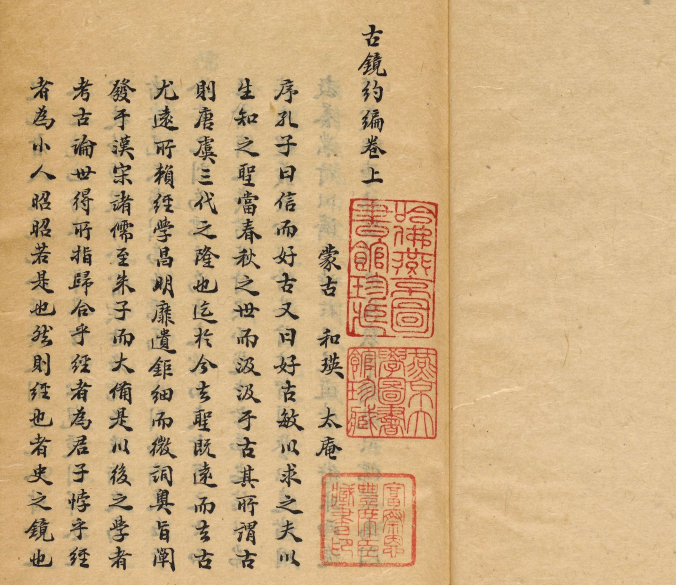 古鏡約編卷上
蒙古 和瑛 太庵
序孔子曰信而好古又曰好古敏以求之夫以
生知之聖當春秋之世而汲汲于古其所謂古
則唐虞三代之隆也迄於今去聖既遠而去古
尤遠所賴經學昌明靡遺鉅細而微詞奧旨闡
發于漢宋諸儒至朱子而大備是以後之學者
考古論世得所指歸合乎經者為君子悖乎經
者為小人昭昭若是也然則經也者史之鏡也
哈佛燕京圖書館珍藏
燕京大學圖書館珍藏
富察恩豐席臣藏書印